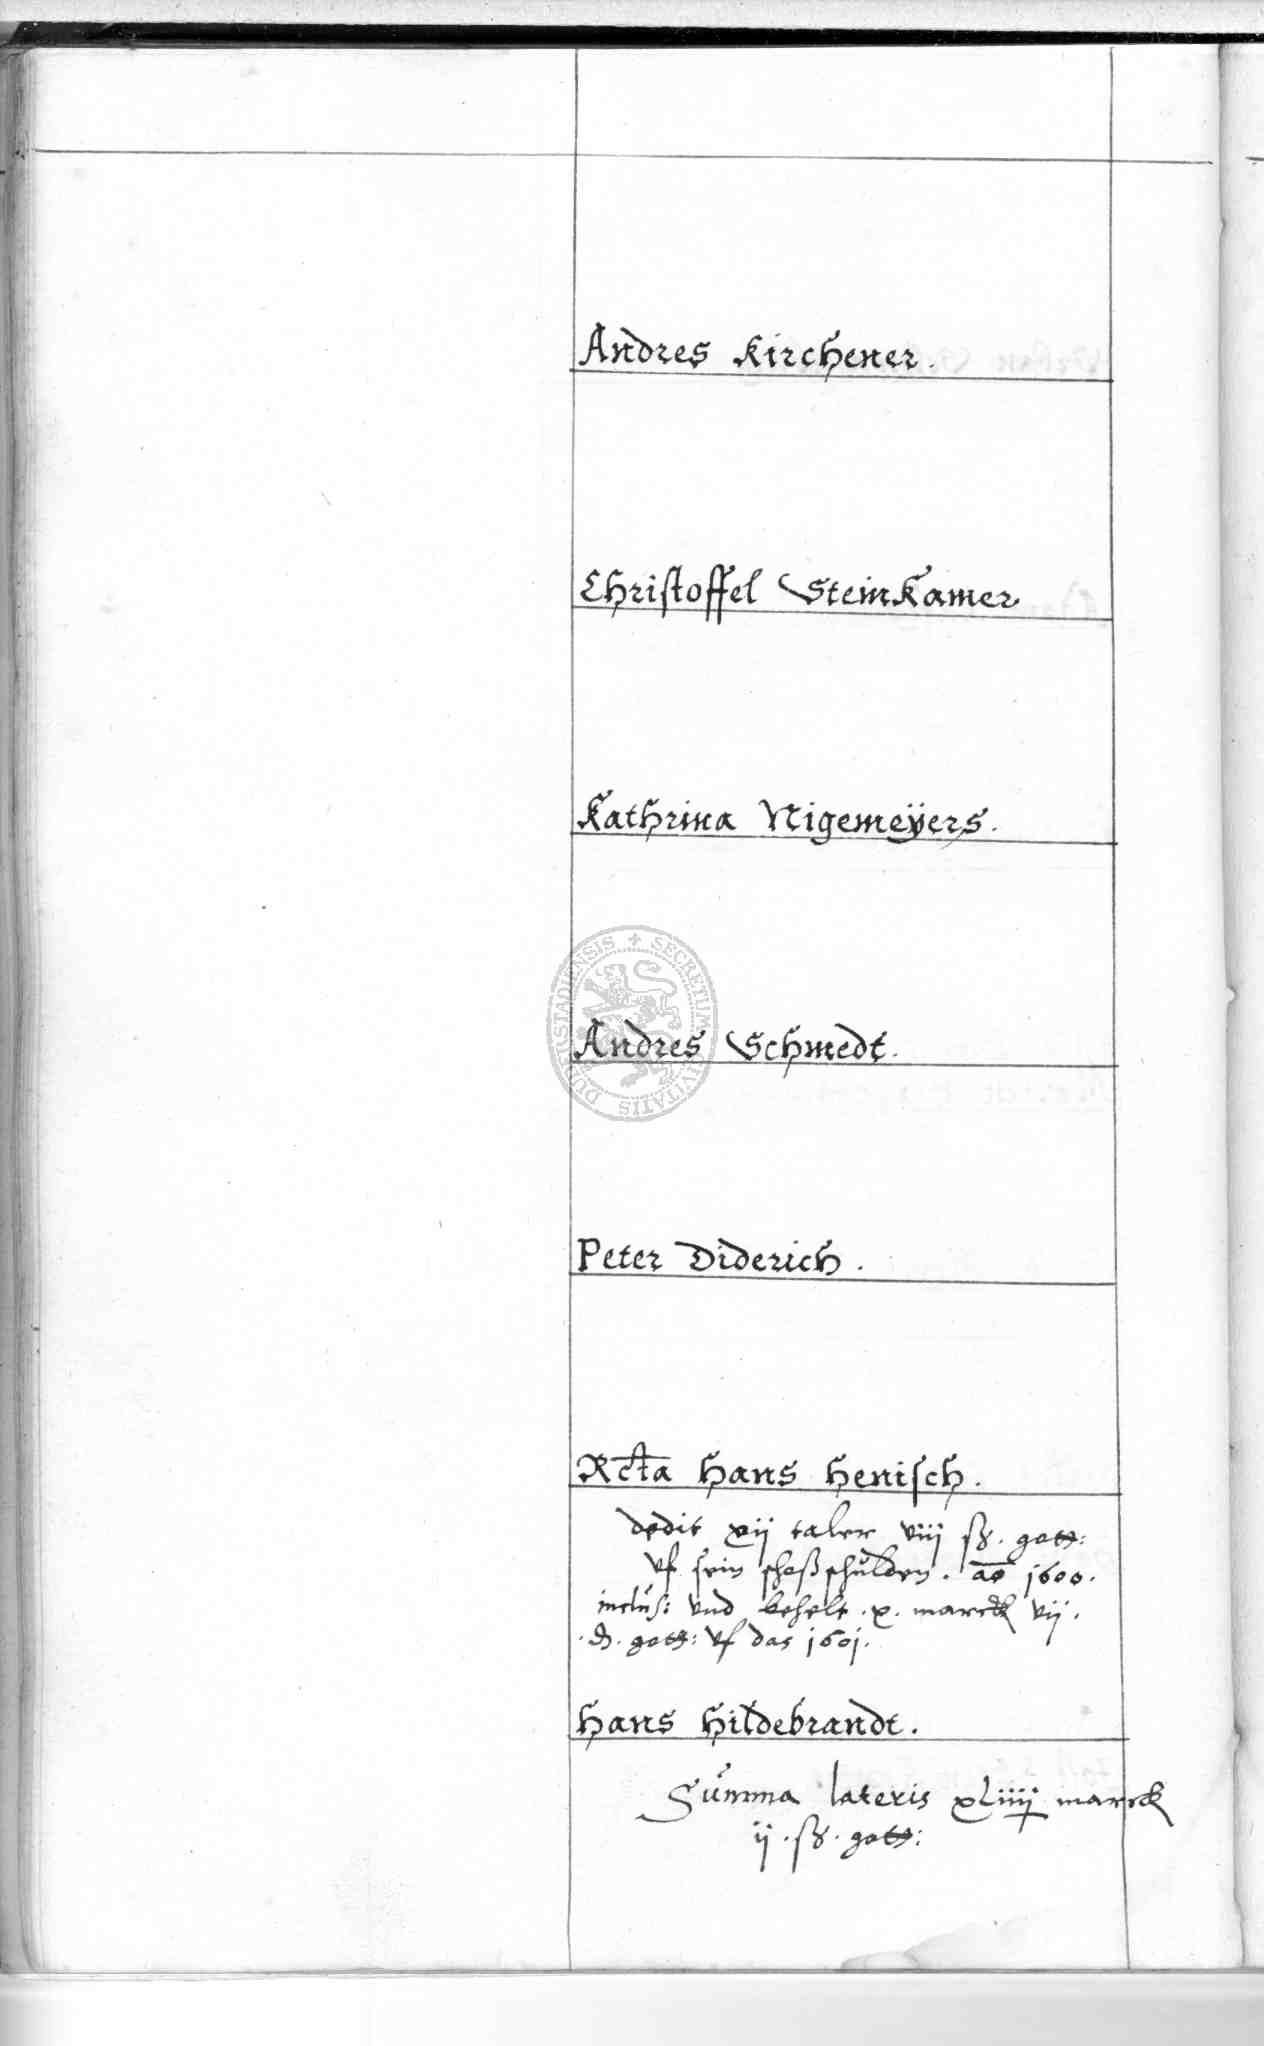 Andres Kirchener.
Christoffel Steinkamer
Kathrina Nigemeÿers.
Andres Schmedt.
Peter Diderich.
Rcta Hans Henisch.
dedit xij taler viij ß. gott:
vf sein schoßschulden. ao 1600.
inclus: vnd behelt. x. marck vij.
.d. gott: vf das 1601.
Hans Hildebrandt.
Summa lateris xLiiij marck
ij. ß. gott:
SECRETUM CIVITATIS DUDERSTADIENSIS